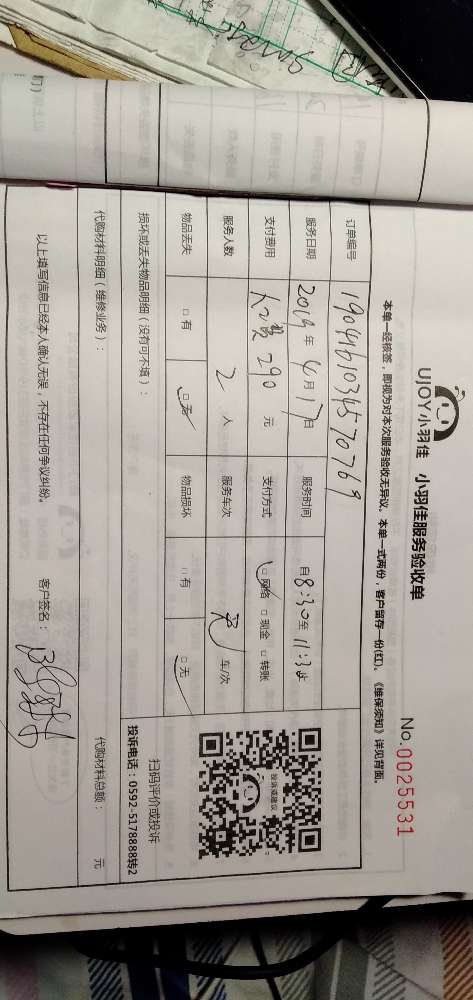 UJOY小羽佳 小羽佳服务验收单
No.0025531
本单一经核签，即视为对本次服务验收无异议。本单一式两份，客户留存一份(红)，《维保须知》详见背面。
订单编号 19041610345707​69
服务日期 2019年4月17日 服务时间 自8:30至11:30止
支付费用 290元 支付方式 □网络 □现金 □转账
服务人数 2人 服务车次 车/次
物品丢失 □有 □无 物品损坏 □有 □无
损坏或丢失物品明细（没有可不填）：
投诉或建议
扫码评价或投诉
投诉电话：0592-5178888转2
代购材料明细（维修业务）： 代购材料总额： 元
以上填写信息已经本人确认无误，不存在任何争议纠纷。 客户签名：